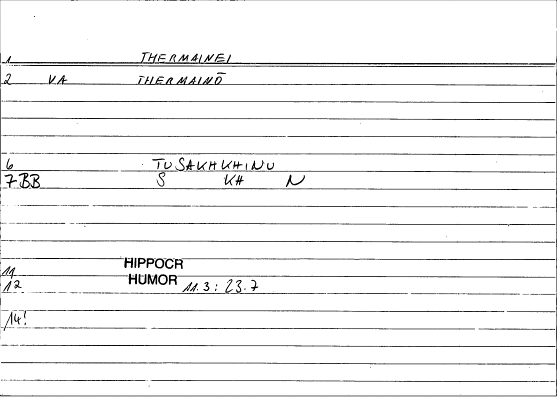 1 THERMAINEI
2 VA THERMAINŌ
6 TUSAKHKHINU
7BB S KH N
11 HIPPOCR
12 HUMOR 11.3: 23.7
14!